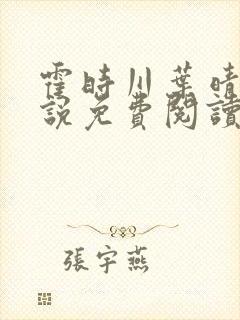 霍時川葉晴
說免費閱讀
張宇燕